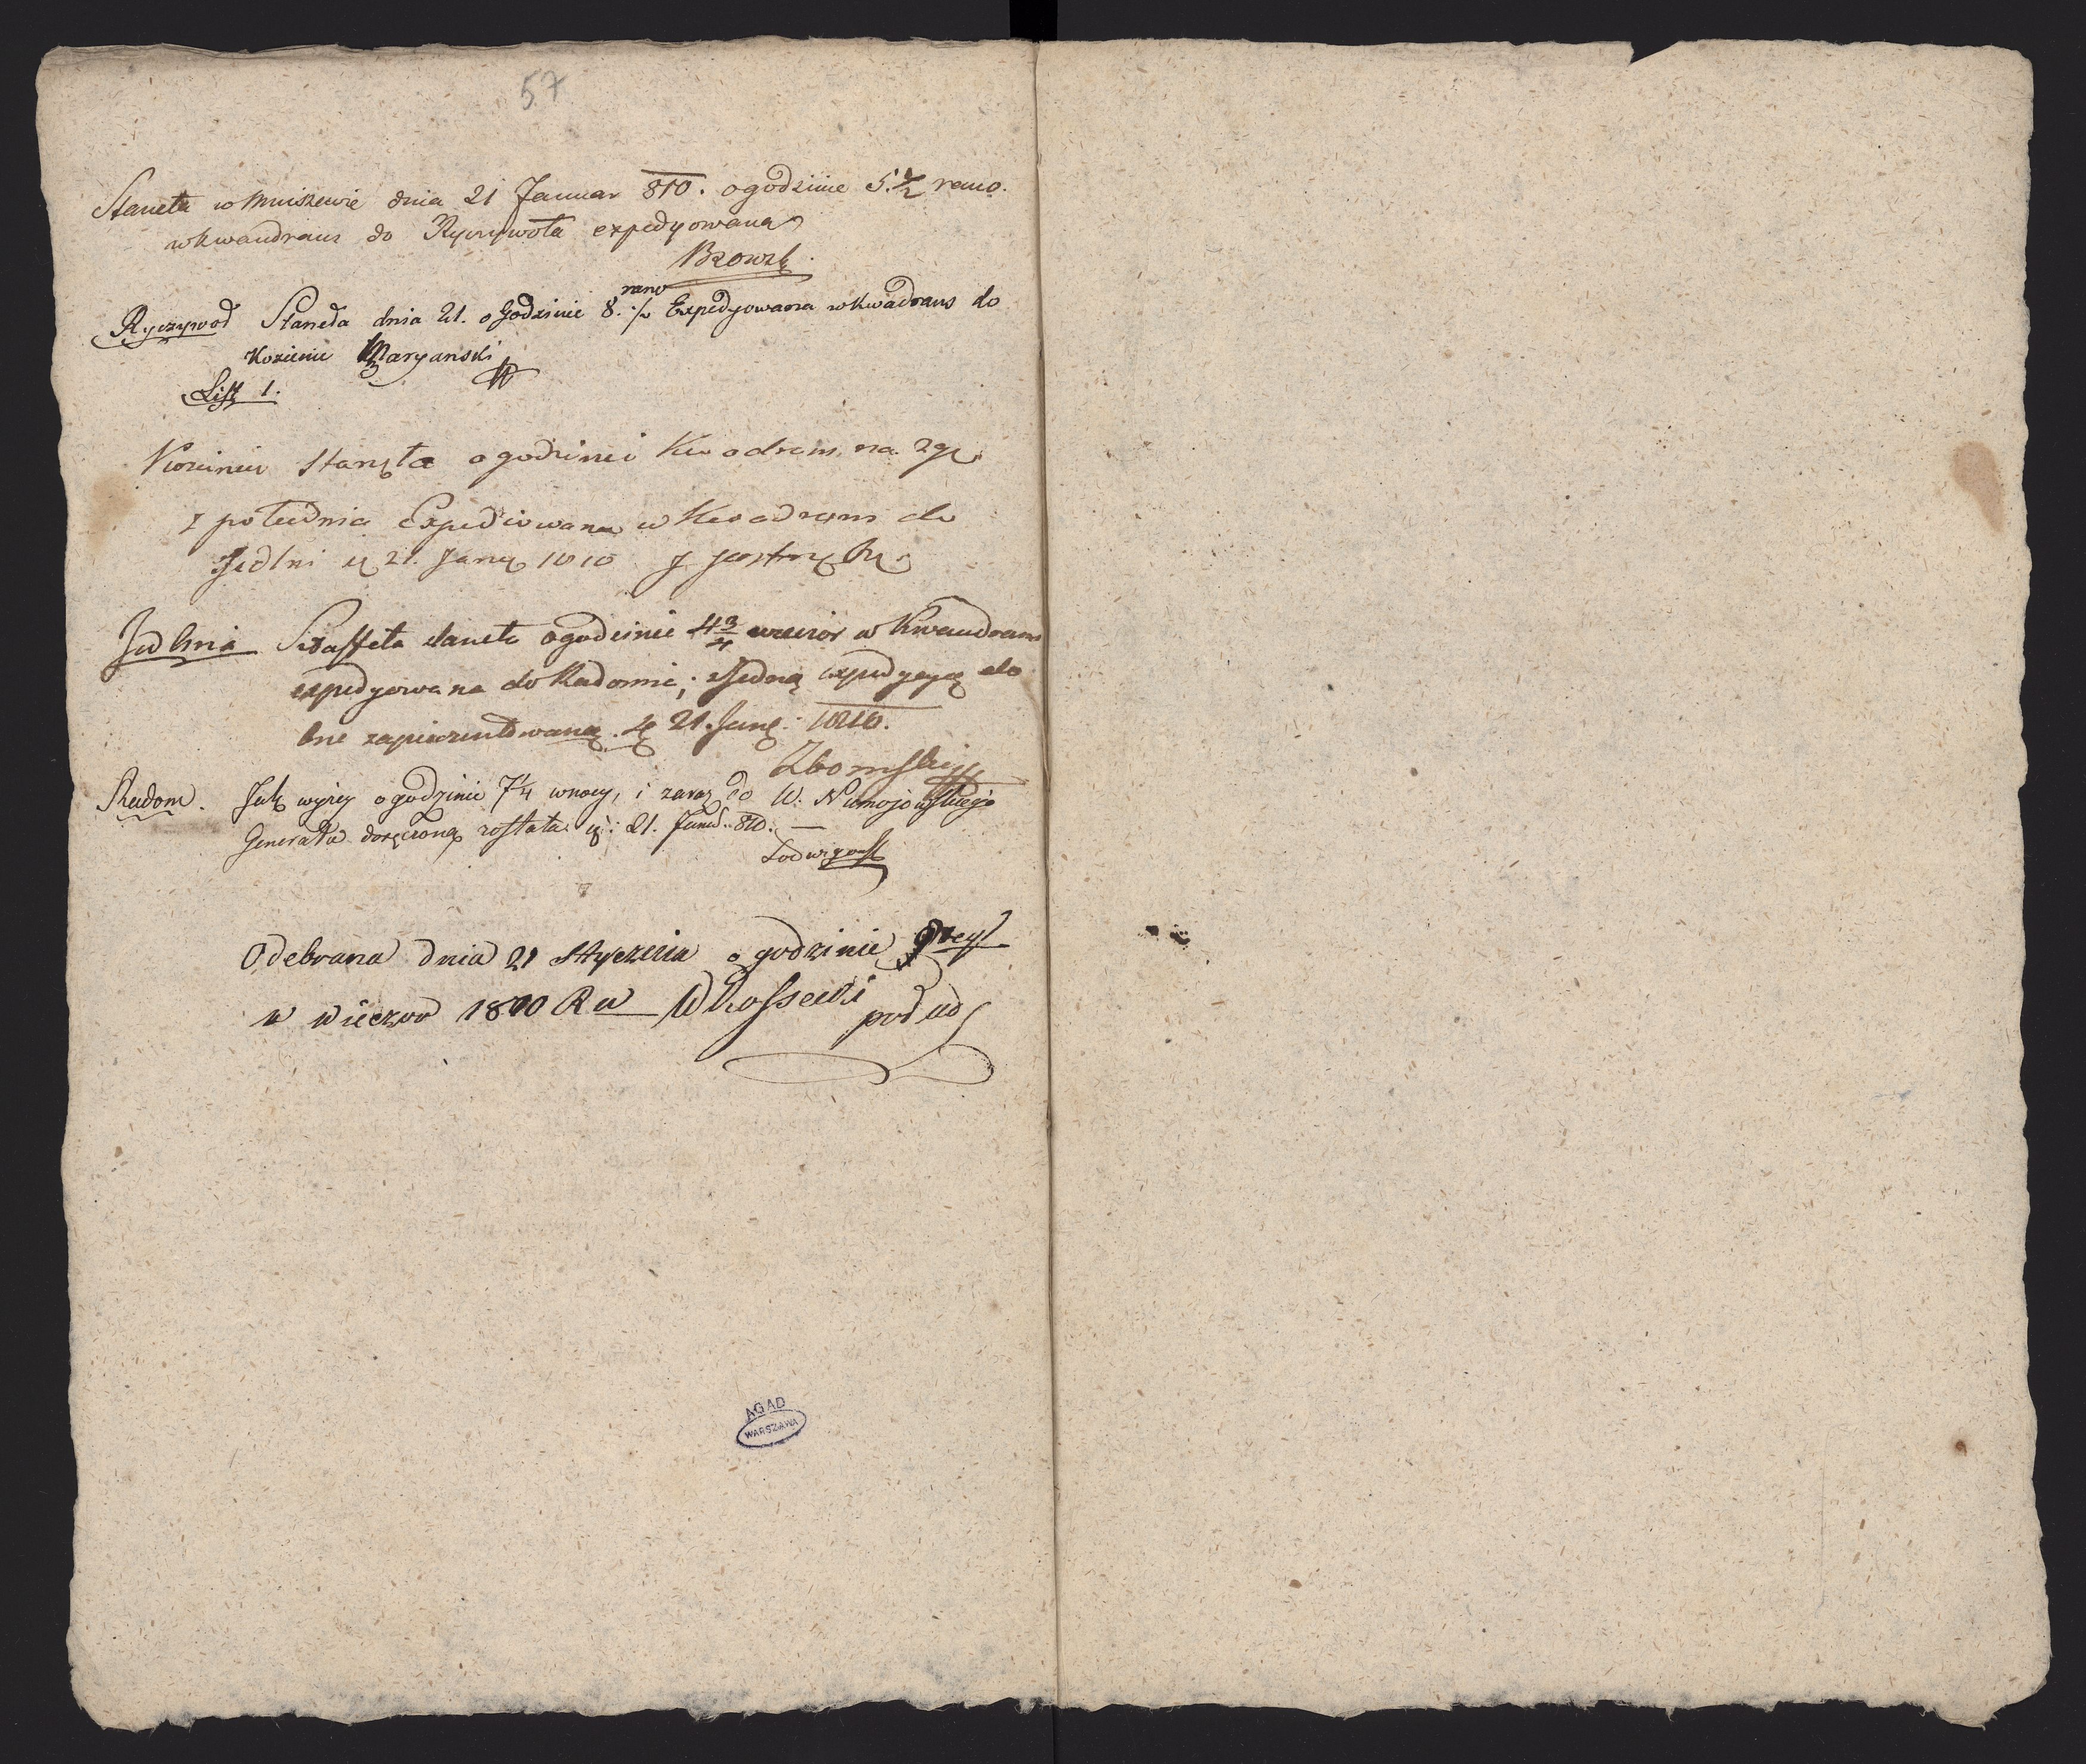 57
Staneta w Mniszewie dnia 21 Januar 810. o godzinie 5. 1/2 rano.
w kwandrans do Ryczywoła expedyowana
Brows
rano
Ryczywoł Staneła dnia 21. o Godzinie 8. Expedyowana w Kwadrans do
Kozienic Maryanski
List 1.
Kozienice stanęła o godzinie Kwadrans na 2gą
z południa Expediowana w Kwadrans do
Jedlni 21. Jan 1810 J
Jedlnia Sztaffeta staneła o godzinie 4 3/4 wieczor w Kwandrans
expedyowana do Radomia; z Jedną expedycyą do
bne zapieczentowaną. 21. Jan: 1810.
Radom. Jak wyżey o godzinie 7 1/4 w nocy, i zaraz do W:
Generała doręczoną została 21. Janu. 810. —
Odebrana dnia 21 Stycznia o godzinie
w wieczor 1810 Ru
AGAD
WARSZAWA